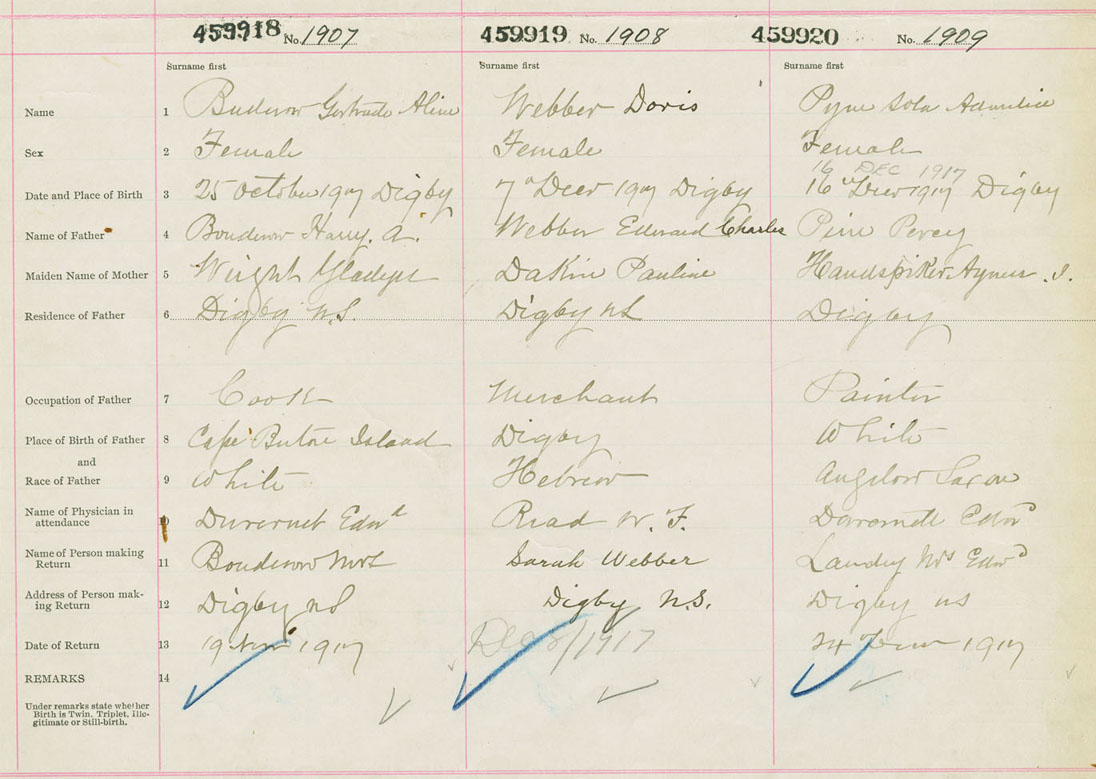 459918 No. 1907 459919 No. 1908 459920 No. 1909
Surname first Surname first Surname first
Name 1 Buderow Gertrude Aline Webber Doris Pyne Sola
Sex 2 Female Female Female
16 DEC 1917
Date and Place of Birth 3 25 October 1917 Digby 7th Decr 1917 Digby 16th Decr 1917 Digby
Name of Father 4 Bouderow Harry. A. Webber Edward Charles Pine Percy
Maiden Name of Mother 5 Wright Gladys Dakin Pauline Handspiker Agnes . J.
Residence of Father 6 Digby N.S. Digby NS Digby
Occupation of Father 7 Cook Merchant Painter
Place of Birth of Father 8 Cape Breton Island Digby White
and
Race of Father 9 White Hebrew Anglow Saxon
Name of Physician in
attendance 10 Duvernet Edwd Read W. F. Edwd
Name of Person making
Return 11 Bouderow Mrs Sarah Webber Landry Mrs Edwd
Address of Person mak-
ing Return 12 Digby NS Digby N.S. Digby NS
Date of Return 13 19 Nov 1917 Dec 8/1917 24 Decr 1917
REMARKS 14
Under remarks state whether
Birth is Twin, Triplet, Ille-
gitimate or Still-birth.